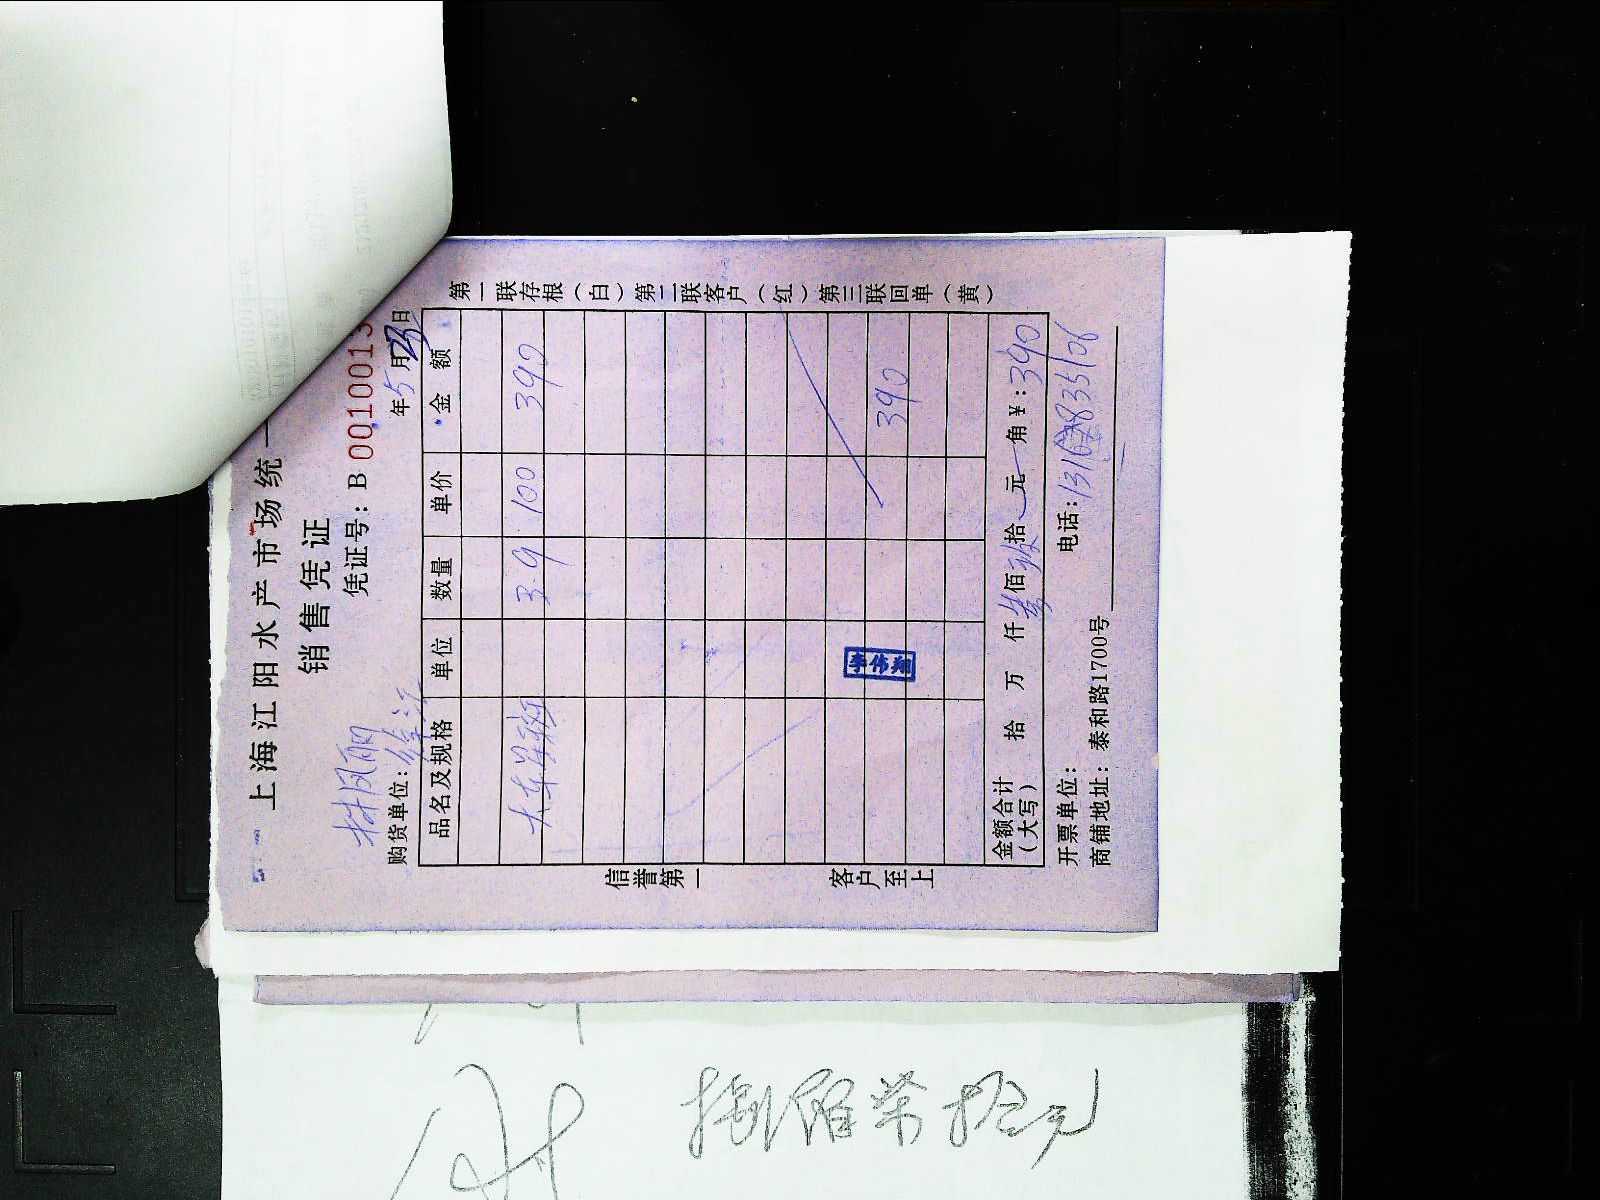 上海江阳水产市场统一
销售凭证
凭证号：B 0010013
年5月23日
购货单位：
品名及规格 单位 数量 单价 金额
3.9 100 390
390
李伟翔
金额合计（大写） 拾 万 仟 叁佰玖拾 元 角 ¥：390
开票单位： 电话：
商铺地址：泰和路1700号
信誉第一 客户至上
第一联存根（白）第二联客户（红）第三联回单（黄）